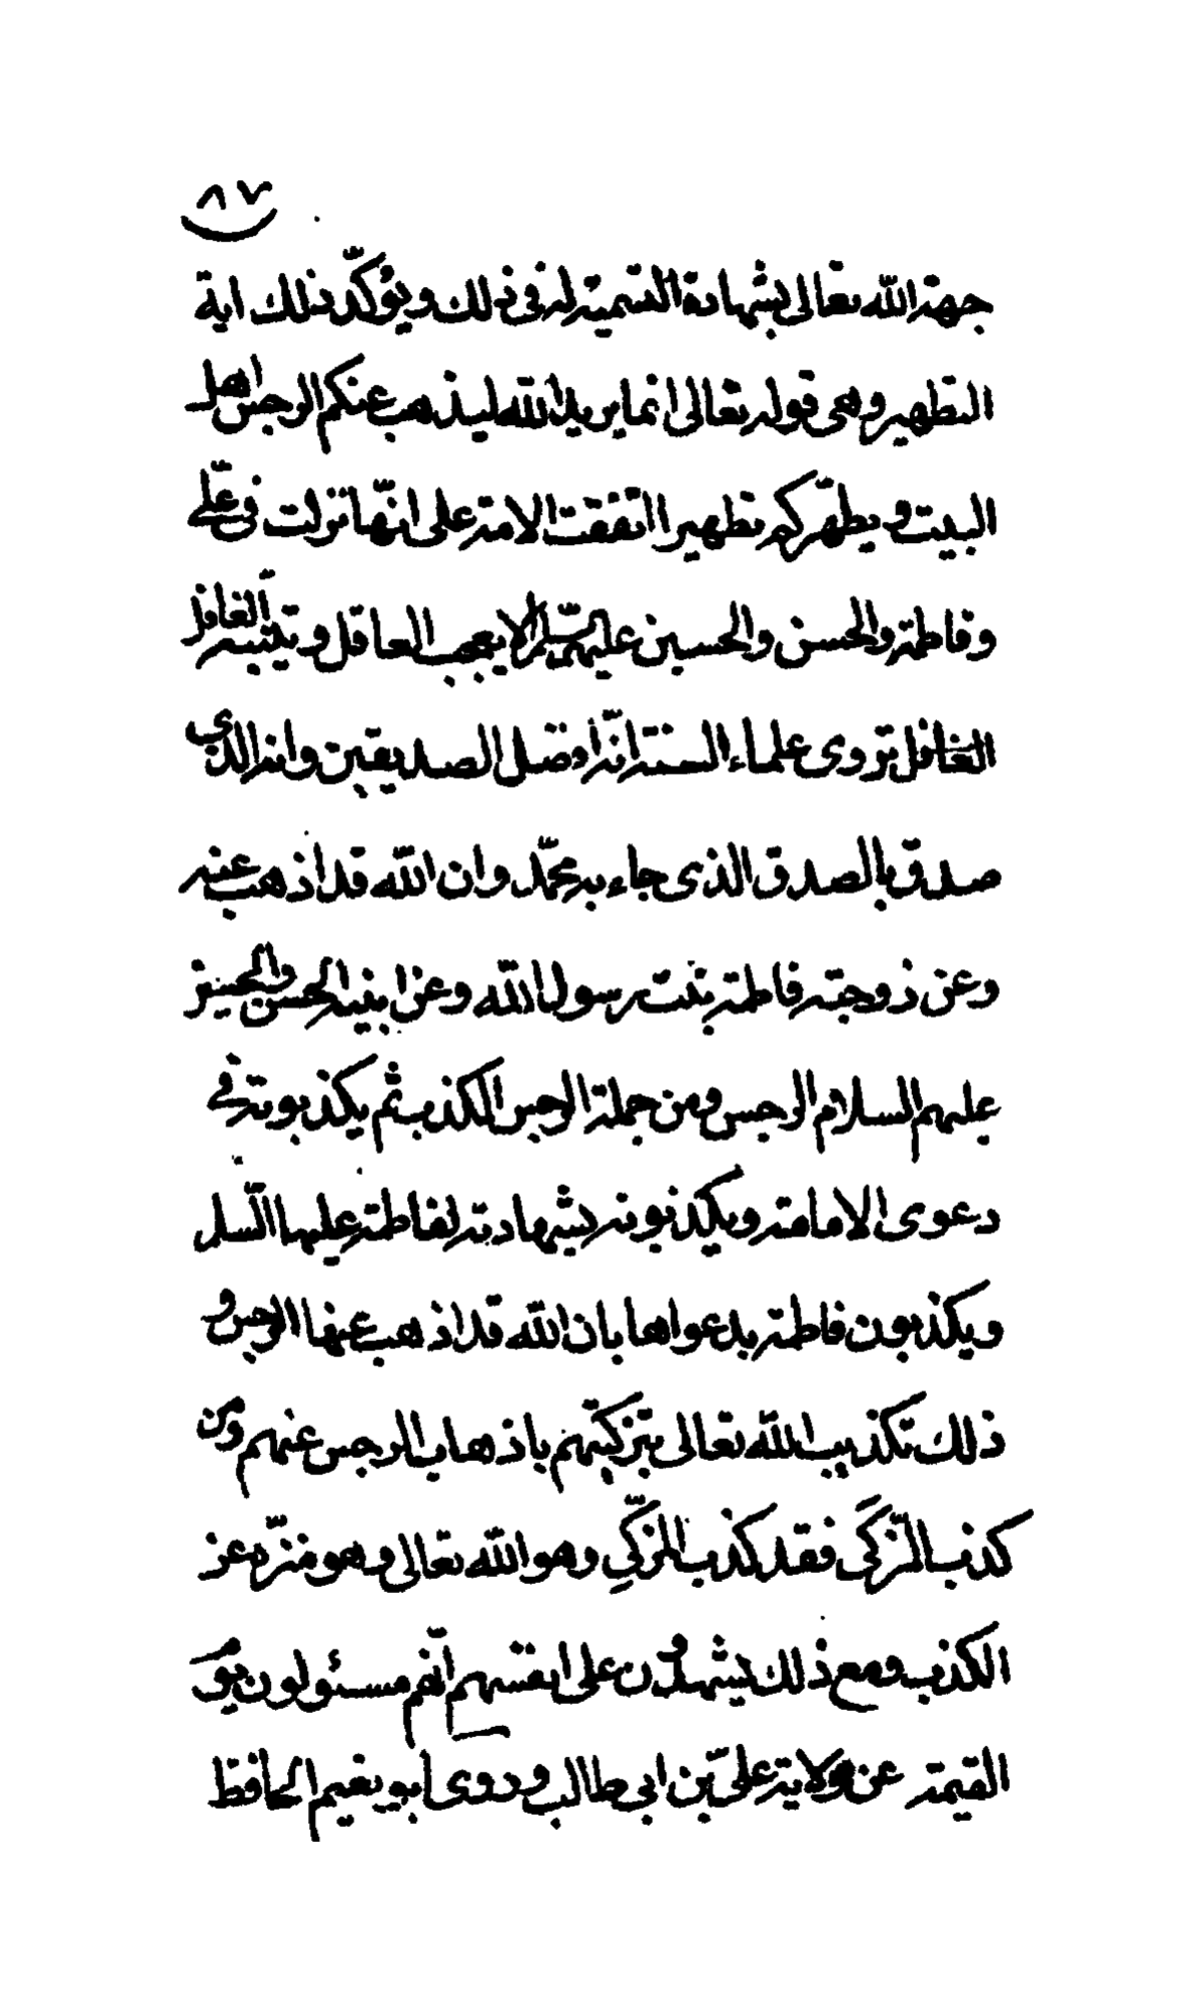 ٨٧
جهة الله تعالى بشهادة التسمية له فى ذلك ويؤكّد ذلك اية
التطهير وهى قوله تعالى انما يريد الله ليذهب عنكم الرجس اهل
البيت ويطهّركم تطهيرا اتفقت الامة على انّها نزلت فى علّى
وفاطمة والحسن والحسين عليهم السّلم الا يعجب العاقل ويتنبه الغافل
الغافل تروى علماء السنة انّه افضل الصديقين وانه الذى
صدق بالصدق الذى جاء به محمّد وان الله قد اذهب عنه
وعن زوجته فاطمة بنت رسول الله وعن ابنيه الحسن والحسين
عليهم السلام الرجس ومن جملة الرجس الكذب ثم يكذبونه فى
دعوى الامامة ويكذبونه بشهادته لفاطمة عليها السّلم
ويكذبون فاطمة بدعواها بان الله قد اذهب عنها الرجس و
ذلك تكذيب الله تعالى بتزكيتهم باذهاب الرجس عنهم ومن
كذب المزكَّى فقد كذب المزكِّى وهو الله تعالى وهو منزّه عن
الكذب ومع ذلك يشهدون على انفسهم انّهم مسئولون يوم
القيمة عن ولاية علىّ بن ابى طالب وروى ابو نعيم الحافظ